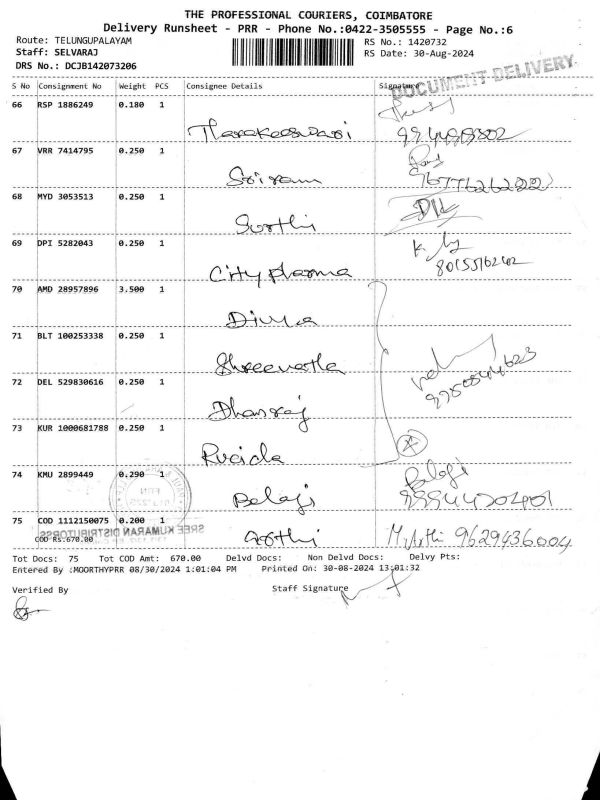 THE PROFESSIONAL COURIERS, COIMBATORE
Delivery Runsheet - PRR - Phone No.:0422-3505555 - Page No.:6
Route: TELUNGUPALAYAM
RS No.: 1420732
Staff: SELVARAJ
RS Date: 30-Aug-2024
DRS No.: DCJB142073206
DOCUMENT DELIVERY
S No Consignment No Weight PCS Consignee Details Signature
66 RSP 1886249 0.180 1
Tharakeeswari
67 VRR 7414795 0.250 1
Sriram
9677626222
68 MYD 3053513 0.250 1
Surthi
69 DPI 5282043 0.250 1
City pharma
70 AMD 28957896 3.500 1
Divya
71 BLT 100253338 0.250 1
Shreevatha
72 DEL 529830616 0.250 1
Dhanraj
73 KUR 1000681788 0.250 1
Rucida
74 KMU 2899449 0.290 1
Balaji Balaji
75 COD 1112150075 0.200 1
COD Rs:670.00
SREE KUMARAN DISTRIBUTORSS
Arthi M. Arthi 9629436004
Tot Docs: 75 Tot COD Amt: 670.00 Delvd Docs: Non Delvd Docs: Delvy Pts:
Entered By :MOORTHYPRR 08/30/2024 1:01:04 PM Printed On: 30-08-2024 13:01:32
Verified By Staff Signature